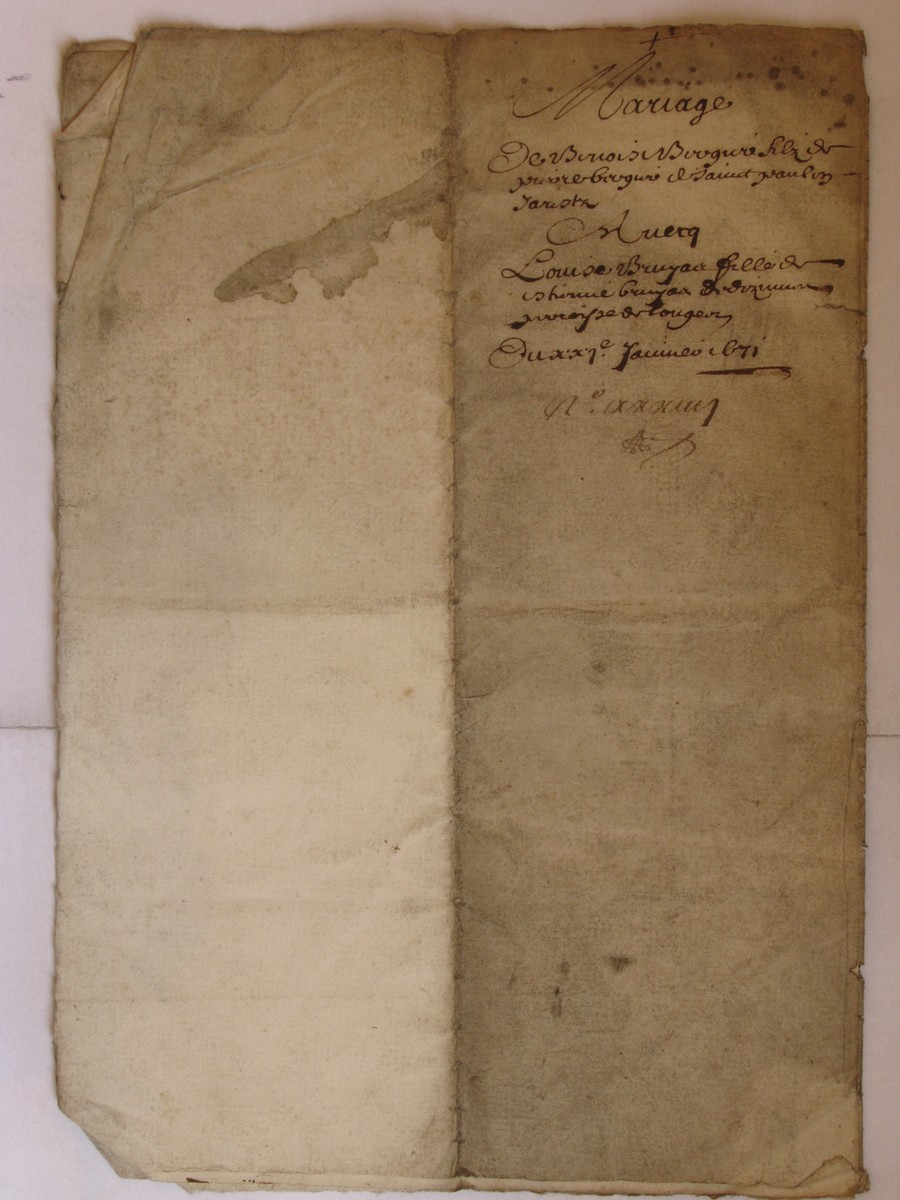 Mariage
De Benoist Berguié filz de
pierre berguié de Saint paul en
Jarestz
Avecq
Louise Bruyas fille de
estienne bruyas de
paroisse de Longes
Du xxje Janvier 1671
N°. xxxiiij